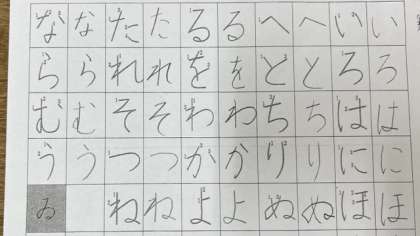 いろはにほ
いろはにほ
へとちりぬ
へとちりぬ
るをわかよ
るをわかよ
たれそつね
たれそつね
ならむう
ならむうゐ